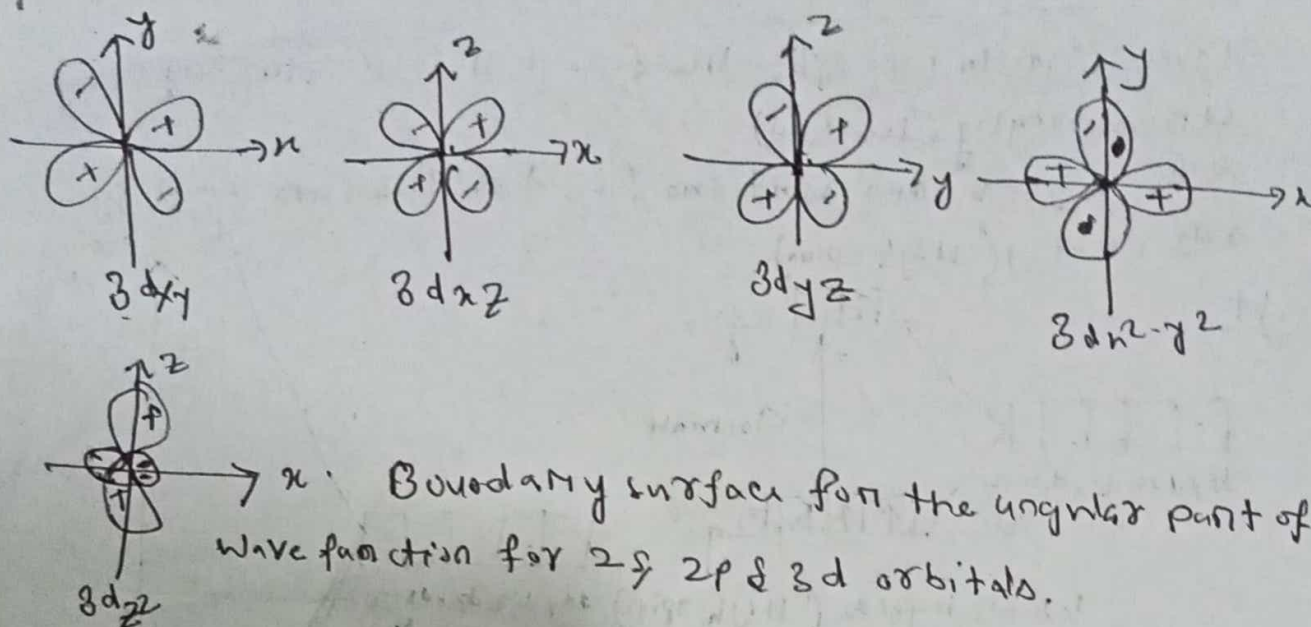 y z z y
- + - + - + -
x x y + + x
+ - + - + -
3dxy 3dxz 3dyz 3dx2-y2
z
+
- - x. Boundary surface for the angular part of
+ wave function for 2s, 2p & 3d orbitals.
3dz2